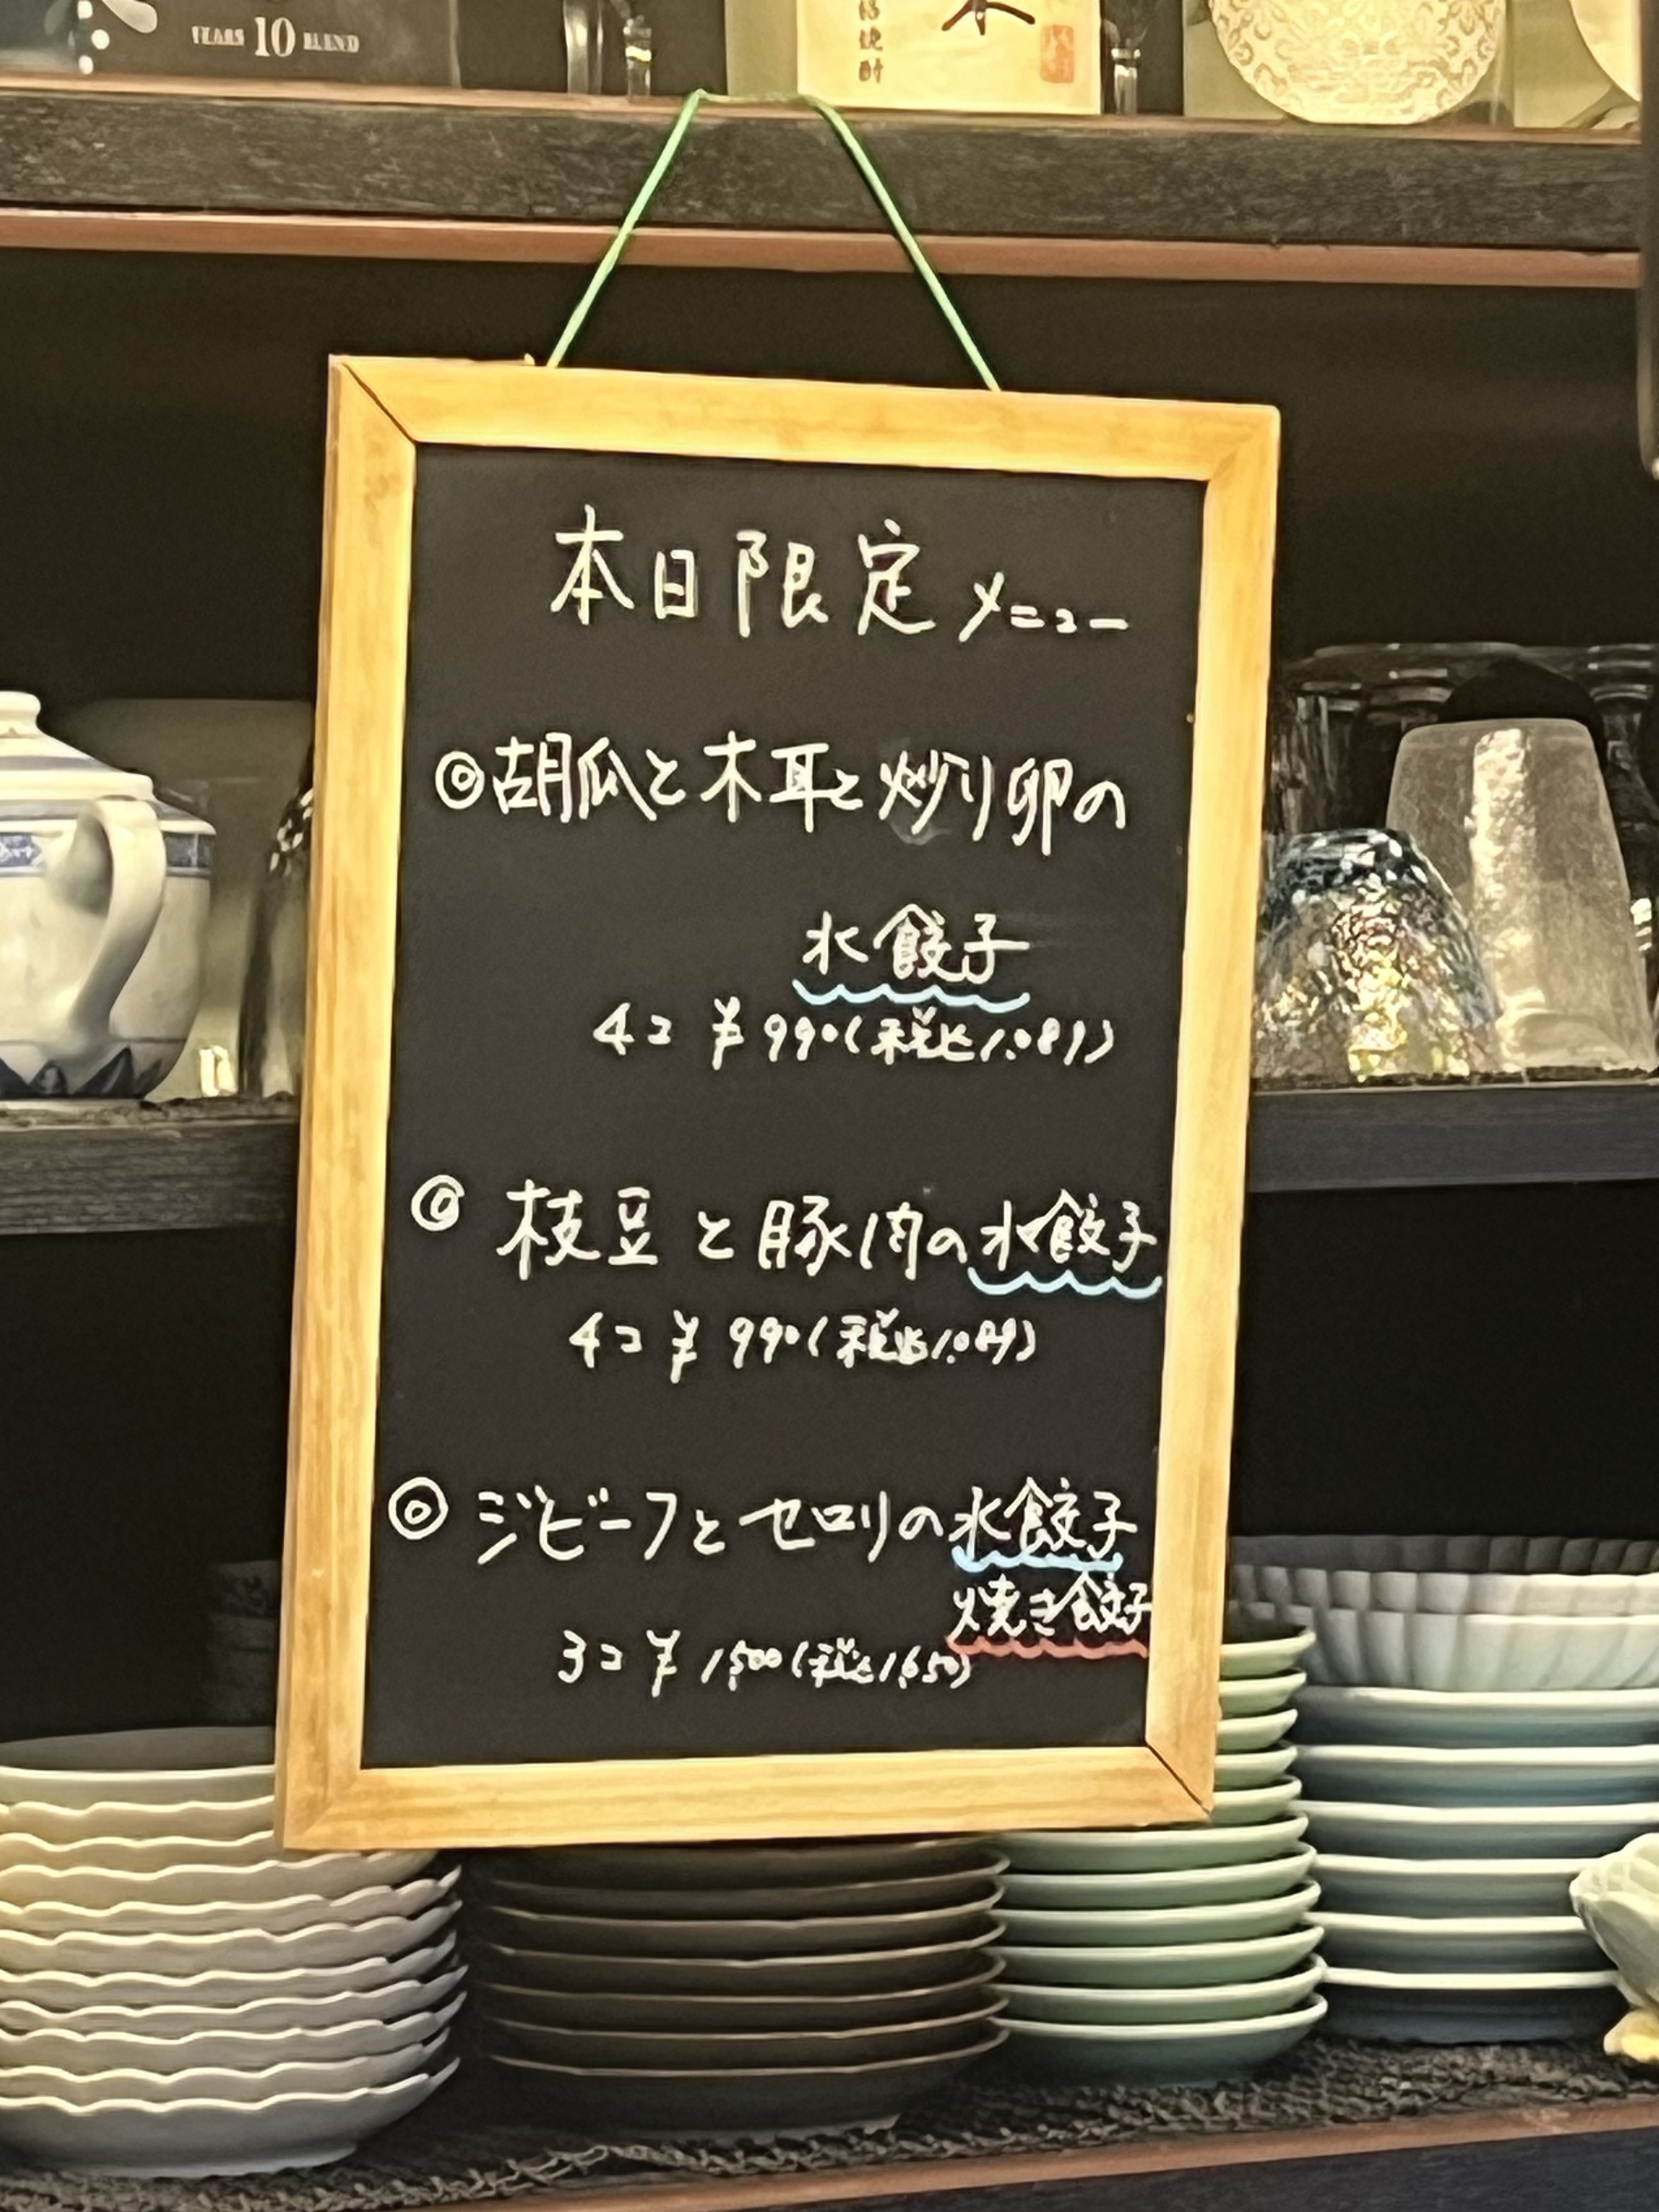 YEARS 10 BLEND
本日限定メニュー
◎胡瓜と木耳と炒り卵の
水餃子
4コ ¥990(税込1.089)
◎枝豆と豚肉の水餃子
4コ ¥990(税込1.089)
◎ジビーフとセロリの水餃子
焼き餃子
3コ ¥1,500(税込1,650)